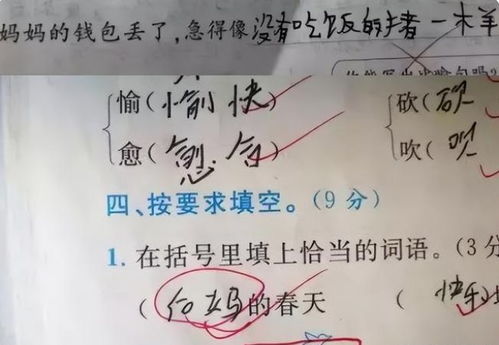 妈妈的钱包丢了,急得像没有吃饭的猪一样
愉(愉快) 砍(砍
愈(愈合) 吹(吹
四、按要求填空。(9分)
1. 在括号里填上恰当的词语。(3分
( 妈的春天 ( 快乐)